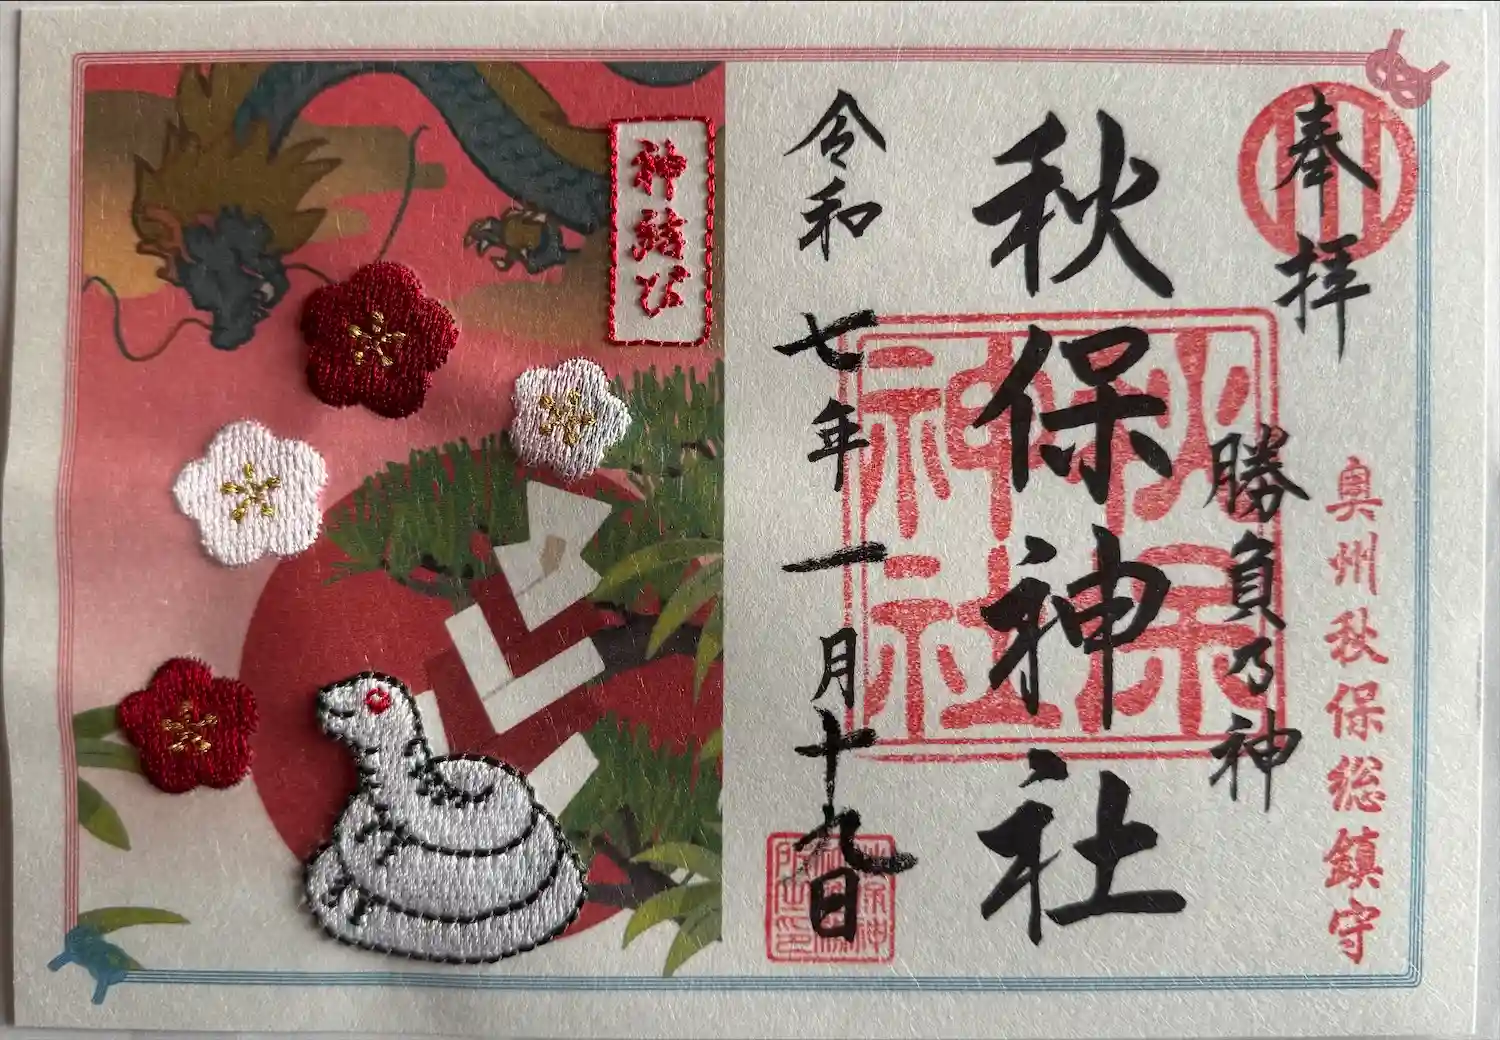 奉拝
奥州秋保総鎮守
勝負乃神
秋保神社
秋保神社
令和七年一月十九日
神結び